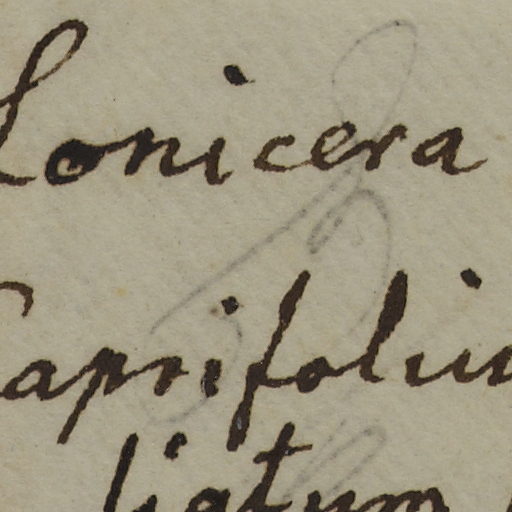 Lonicera
Caprifoliu
liatum